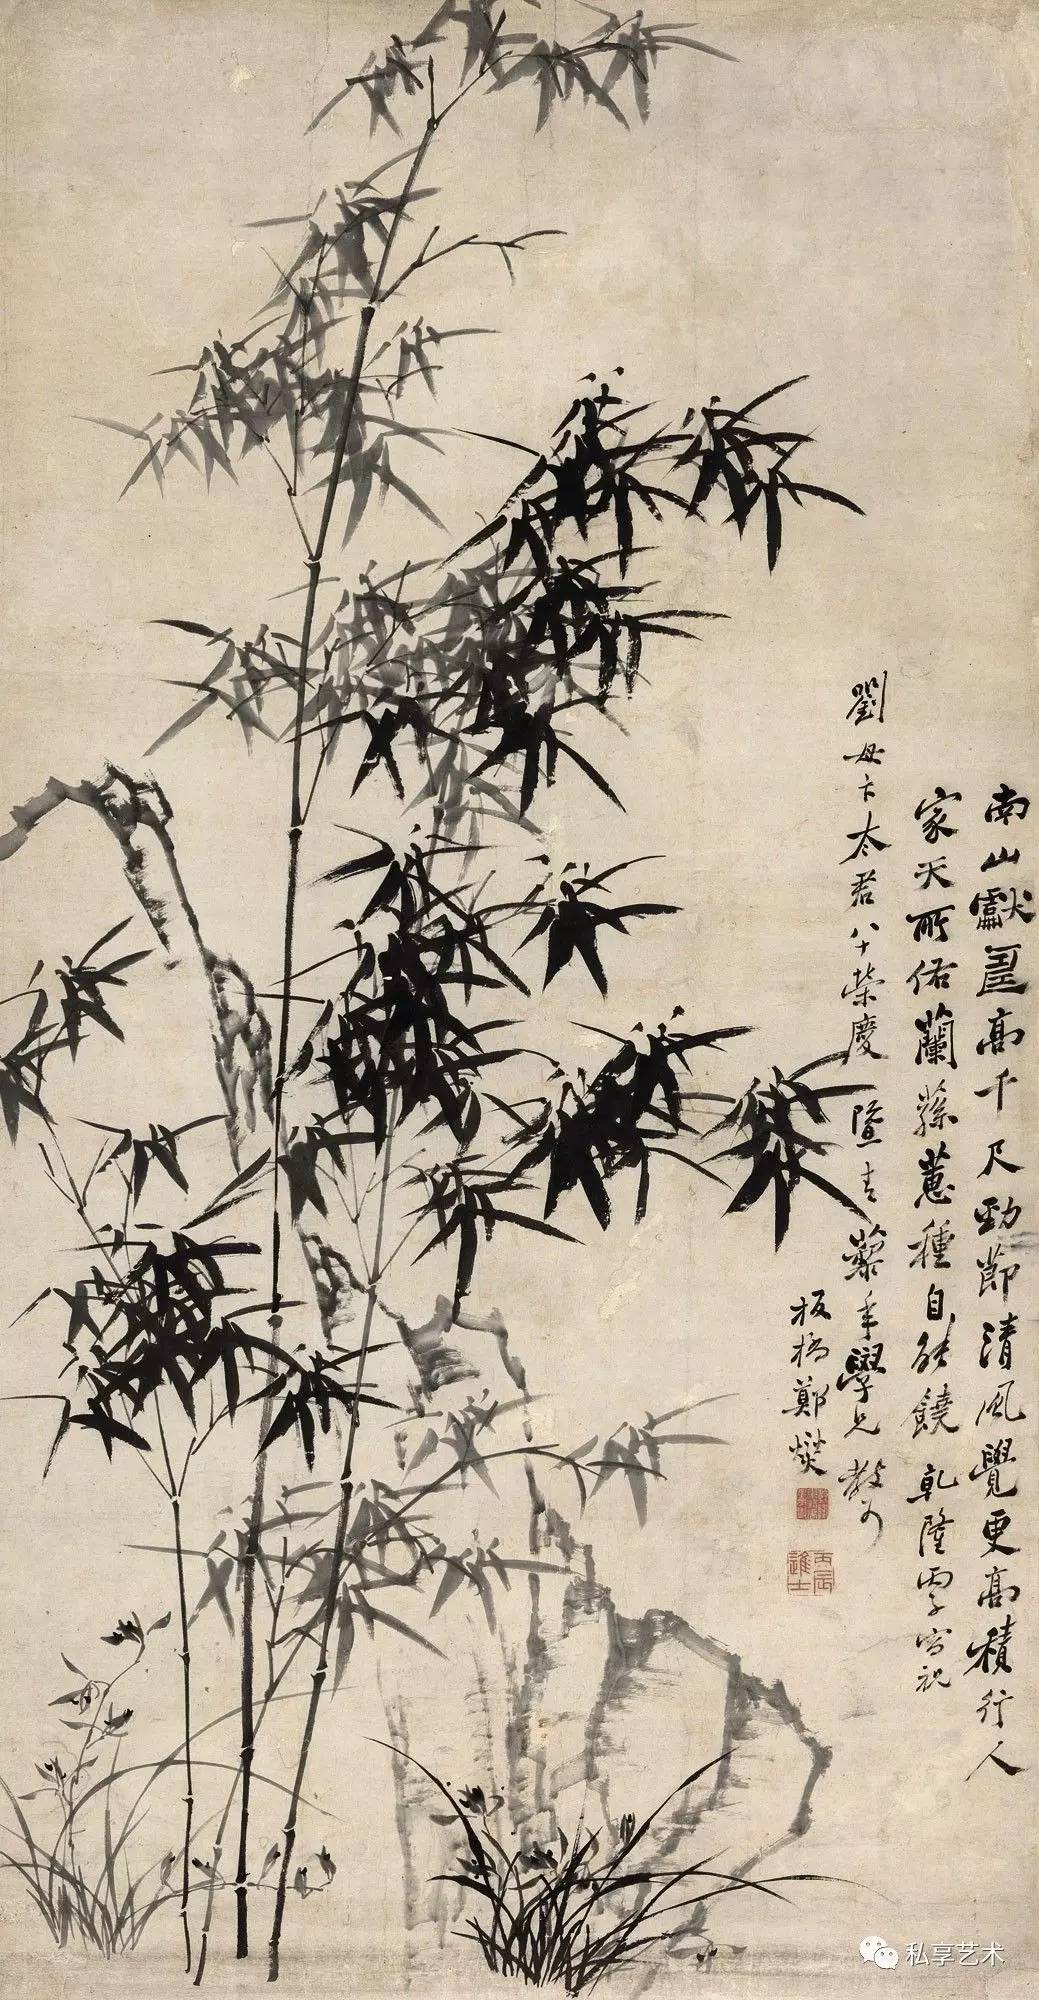 南山獻壽高千尺勁節清風覺更高積行人
家天所佑蘭蓀蕙種自能饒 乾隆 寫祝
劉母卞太君八十榮慶 暨青藜年學兄教可
板橋鄭燮
丙辰進士
私享艺术